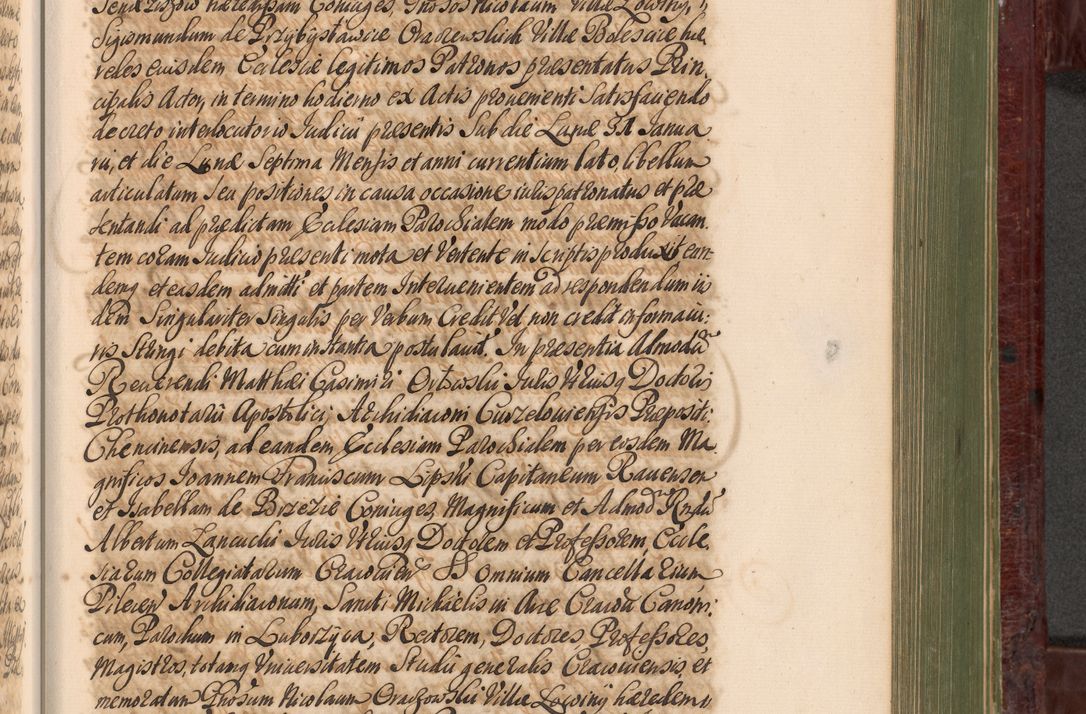 Sigismundum de Przybysławice Oraczewskich Villæ Bolescice hæ
redes eiusdem Ecclesiæ legitimos Patronos præsentatus Prin
cipalis Actor, in termino hodierno ex Actis proveniente Satisfaciendo
decreto interlocutorio Iudicii præsentis Sub die Lunæ 31 Janua
rii, et die Lunæ Septima Mensis et anni currentium lato, libellum
articulatum seu positiones in causa occasione iuris patronatus et præ
sentandi ad prædictam Ecclesiam Parochialem modo præmisso Vacan
tem coram Iudicio præsenti mota et Vertente in scriptis produxit ean
demq et easdem admitti et partem Intervenientem ad respondendum iis
dem Singulariter Singulis per Verbum Credit Vel non credit informari
iuris Stringi debita cum instantia postulavit. In præsentia Admodū
Reverendi Matthæi Casimiri Orłowski Iuris Utriusq Doctoris
Prothonotarii Apostolici Archidiaconi Curzeloviensis Præpositi
Chencinensis, ad eandem Ecclesiam Parochialem per eosdem Ma
gnificos Joannem Franciscum Lipski Capitaneum Ravensem
et Isabellam de Brzezie Coniuges, Magnificum et Admod Rndū
Albertum Łancucki Iuris Utriusq Doctorem et Professorem, Eccle
siarum Collegiatarum Cracovien SS Omnium Cancellarium
Pilecen Archidiaconum, Sancti Michaelis in Arce Cracov Canoni
cum, Parochum in Luborzyca, Rectorem, Doctores Professores,
Magistros, totamq Universitatem Studii generalis Cracoviensis, et
memoratum Ghosum Nicolaum Oraczowski Villæ Lowiny hæredem